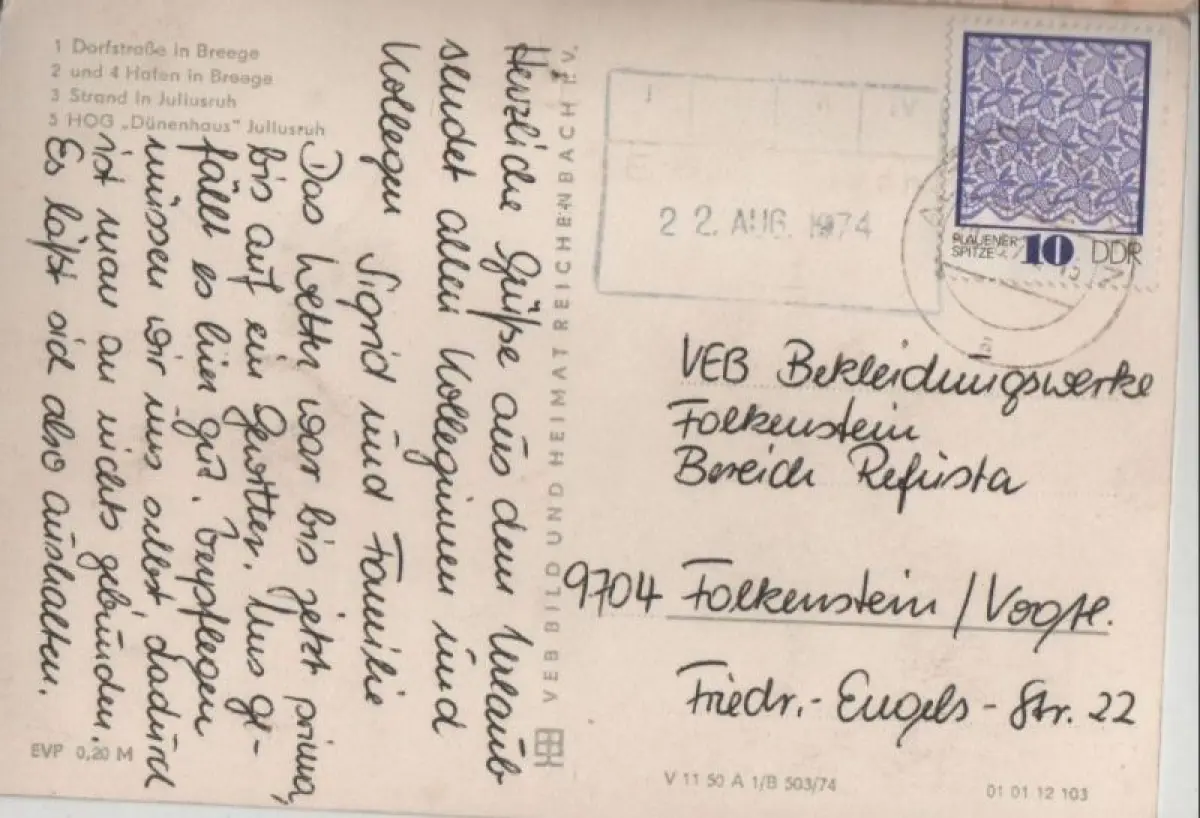 1 Dorfstraße in Breege
2 und 4 Hafen in Breege
3 Strand in Juliusruh
5 HOG „Dünenhaus" Juliusruh
Herzliche Grüße aus dem Urlaub
sendet allen Kolleginnen und
Kollegen
Sigrid und Familie
Das Wetter war bis jetzt prima,
bis auf ein Gewitter. Uns ge-
fällt es hier gut. Verpflegen
müssen wir uns selbst, dadurch
ist man an nichts gebunden.
Es läßt sich also aushalten.
EVP 0,20 M
VEB BILD UND HEIMAT REICHENBACH i. V.
22. AUG. 1974
PLAUENER
SPITZE
10 DDR
VEB Bekleidungswerke
Falkenstein
Bereich Refusta
9704 Falkenstein / Vogtl.
Friedr.-Engels-Str. 22
V 11 50 A 1/B 503/74
01 01 12 103